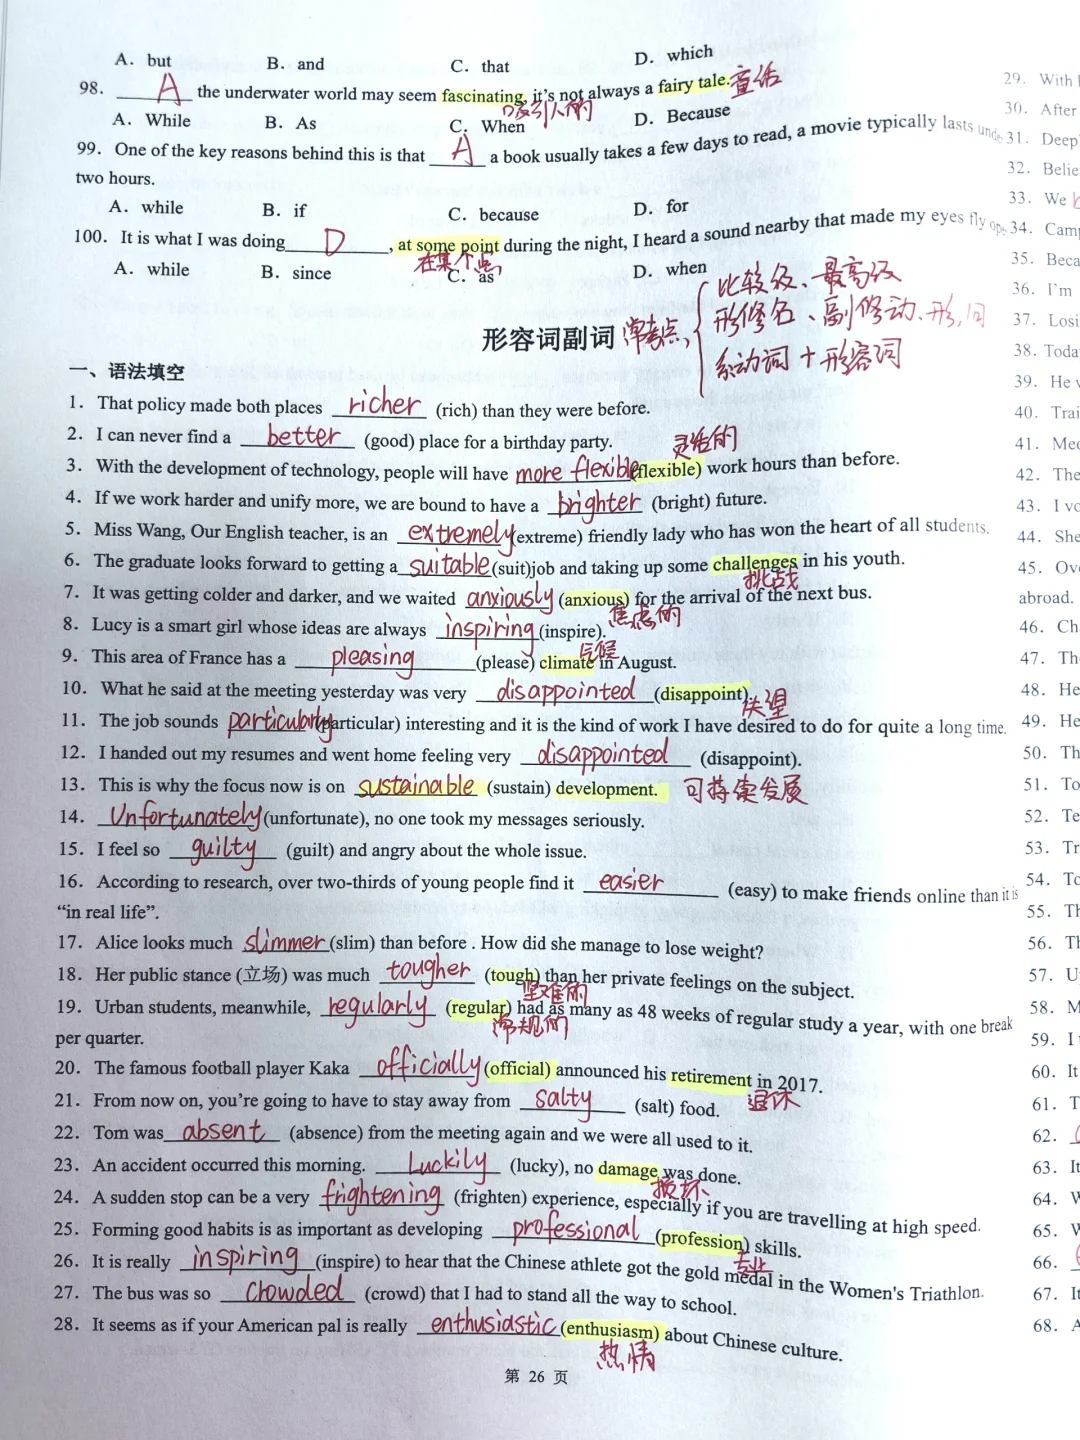 A. but B. and C. that D. which
98. A the underwater world may seem fascinating, it's not always a fairy tale. 童话
吸引人的
A. While B. As C. When D. Because
99. One of the key reasons behind this is that A a book usually takes a few days to read, a movie typically lasts unde
two hours.
A. while B. if C. because D. for
100. It is what I was doing D, at some point during the night, I heard a sound nearby that made my eyes fly ope
在某个点
A. while B. since C. as D. when
比较级、最高级
形容词副词 常考点 形修名、副修动、形,
系动词+形容词
一、语法填空
1. That policy made both places richer (rich) than they were before.
2. I can never find a better (good) place for a birthday party.
灵活的
3. With the development of technology, people will have more flexible (flexible) work hours than before.
4. If we work harder and unify more, we are bound to have a brighter (bright) future.
5. Miss Wang, Our English teacher, is an extremely (extreme) friendly lady who has won the heart of all students.
6. The graduate looks forward to getting a suitable (suit)job and taking up some challenges in his youth.
挑战
7. It was getting colder and darker, and we waited anxiously (anxious) for the arrival of the next bus.
焦虑的
8. Lucy is a smart girl whose ideas are always inspiring (inspire).
气候
9. This area of France has a pleasing (please) climate in August.
10. What he said at the meeting yesterday was very disappointed (disappoint).
失望
11. The job sounds particularly (particular) interesting and it is the kind of work I have desired to do for quite a long time.
12. I handed out my resumes and went home feeling very disappointed (disappoint).
13. This is why the focus now is on sustainable (sustain) development. 可持续发展
14. Unfortunately (unfortunate), no one took my messages seriously.
15. I feel so guilty (guilt) and angry about the whole issue.
16. According to research, over two-thirds of young people find it easier (easy) to make friends online than it is
“in real life”.
17. Alice looks much slimmer (slim) than before . How did she manage to lose weight?
18. Her public stance (立场) was much tougher (tough) than her private feelings on the subject.
坚难的
19. Urban students, meanwhile, regularly (regular) had as many as 48 weeks of regular study a year, with one break
常规的
per quarter.
20. The famous football player Kaka officially (official) announced his retirement in 2017.
退休
21. From now on, you're going to have to stay away from salty (salt) food.
22. Tom was absent (absence) from the meeting again and we were all used to it.
23. An accident occurred this morning. Luckily (lucky), no damage was done.
损坏
24. A sudden stop can be a very frightening (frighten) experience, especially if you are travelling at high speed.
25. Forming good habits is as important as developing professional (profession) skills.
专业
26. It is really inspiring (inspire) to hear that the Chinese athlete got the gold medal in the Women's Triathlon.
27. The bus was so crowded (crowd) that I had to stand all the way to school.
28. It seems as if your American pal is really enthusiastic (enthusiasm) about Chinese culture.
热情
第 26 页
29. With
30. After
31. Deep
32. Belie
33. We
34. Camp
35. Beca
36. I'm
37. Losi
38. Toda
39. He
40. Trai
41. Mee
42. The
43. I vo
44. She
45. Ove
abroad.
46. Ch
47. Th
48. He
49. He
50. Th
51. To
52. Te
53. Tr
54. To
55. Th
56. Th
57. U
58. M
59. I
60. It
61. T
62.
63. It
64.
65.
66.
67. It
68. A